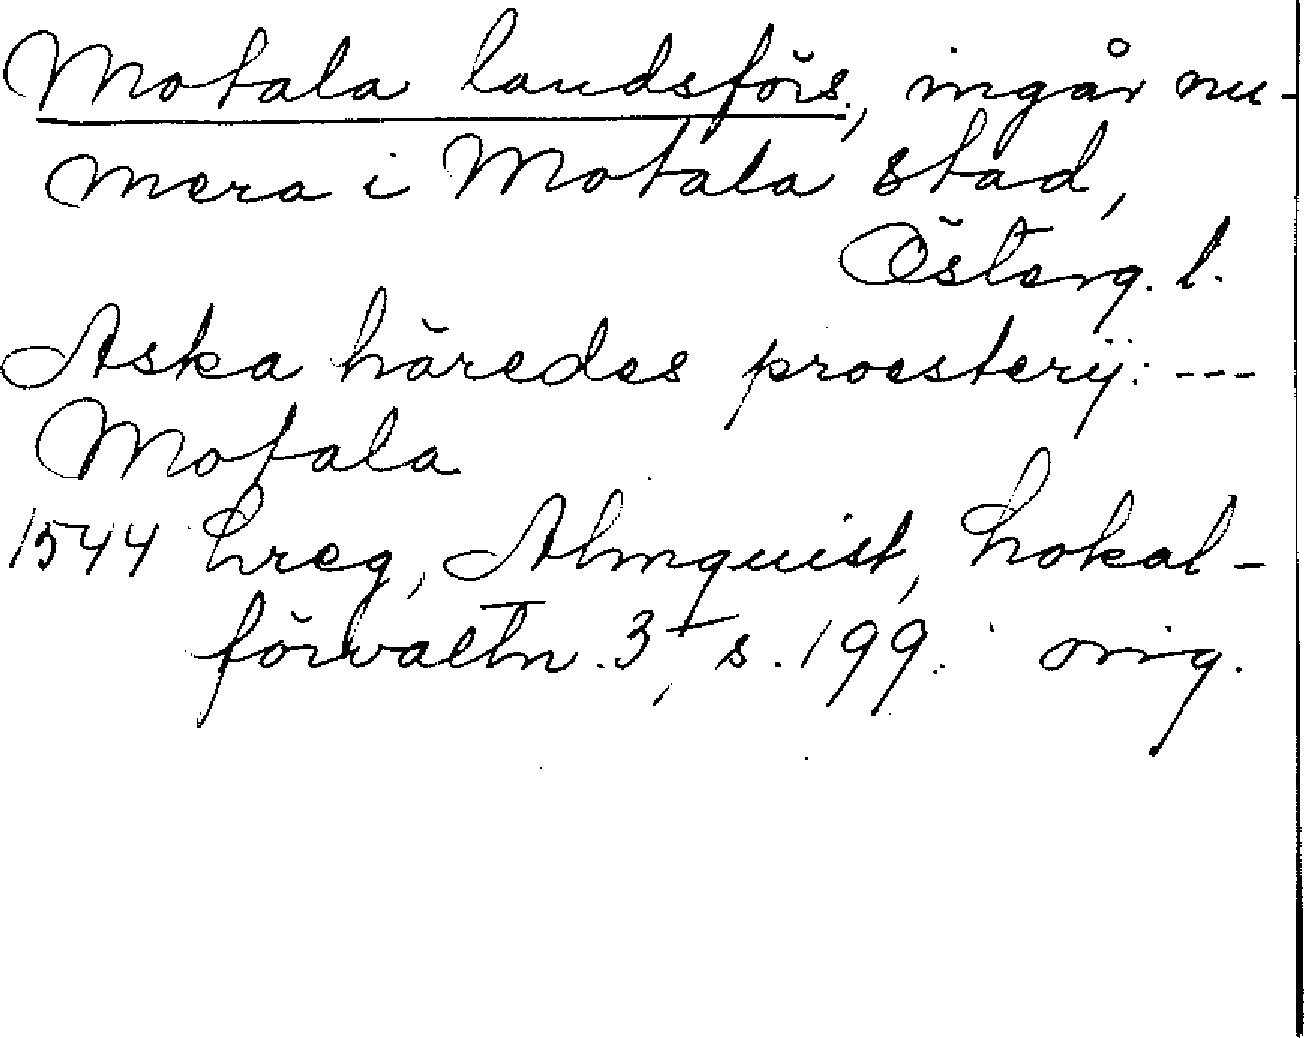 Motala landsförs., ingår nu-
mera i Motala stad,
Österg. l.
Aska häredes proesterij: ---
Motala
1544 Lreg, Almquist, Lokal-
förvaltn. 3, s. 199. orig.